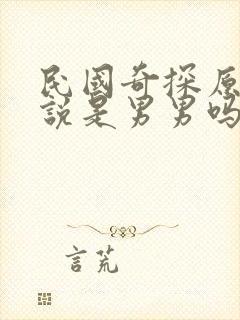 民國奇探原
說是男男嗎
言荒